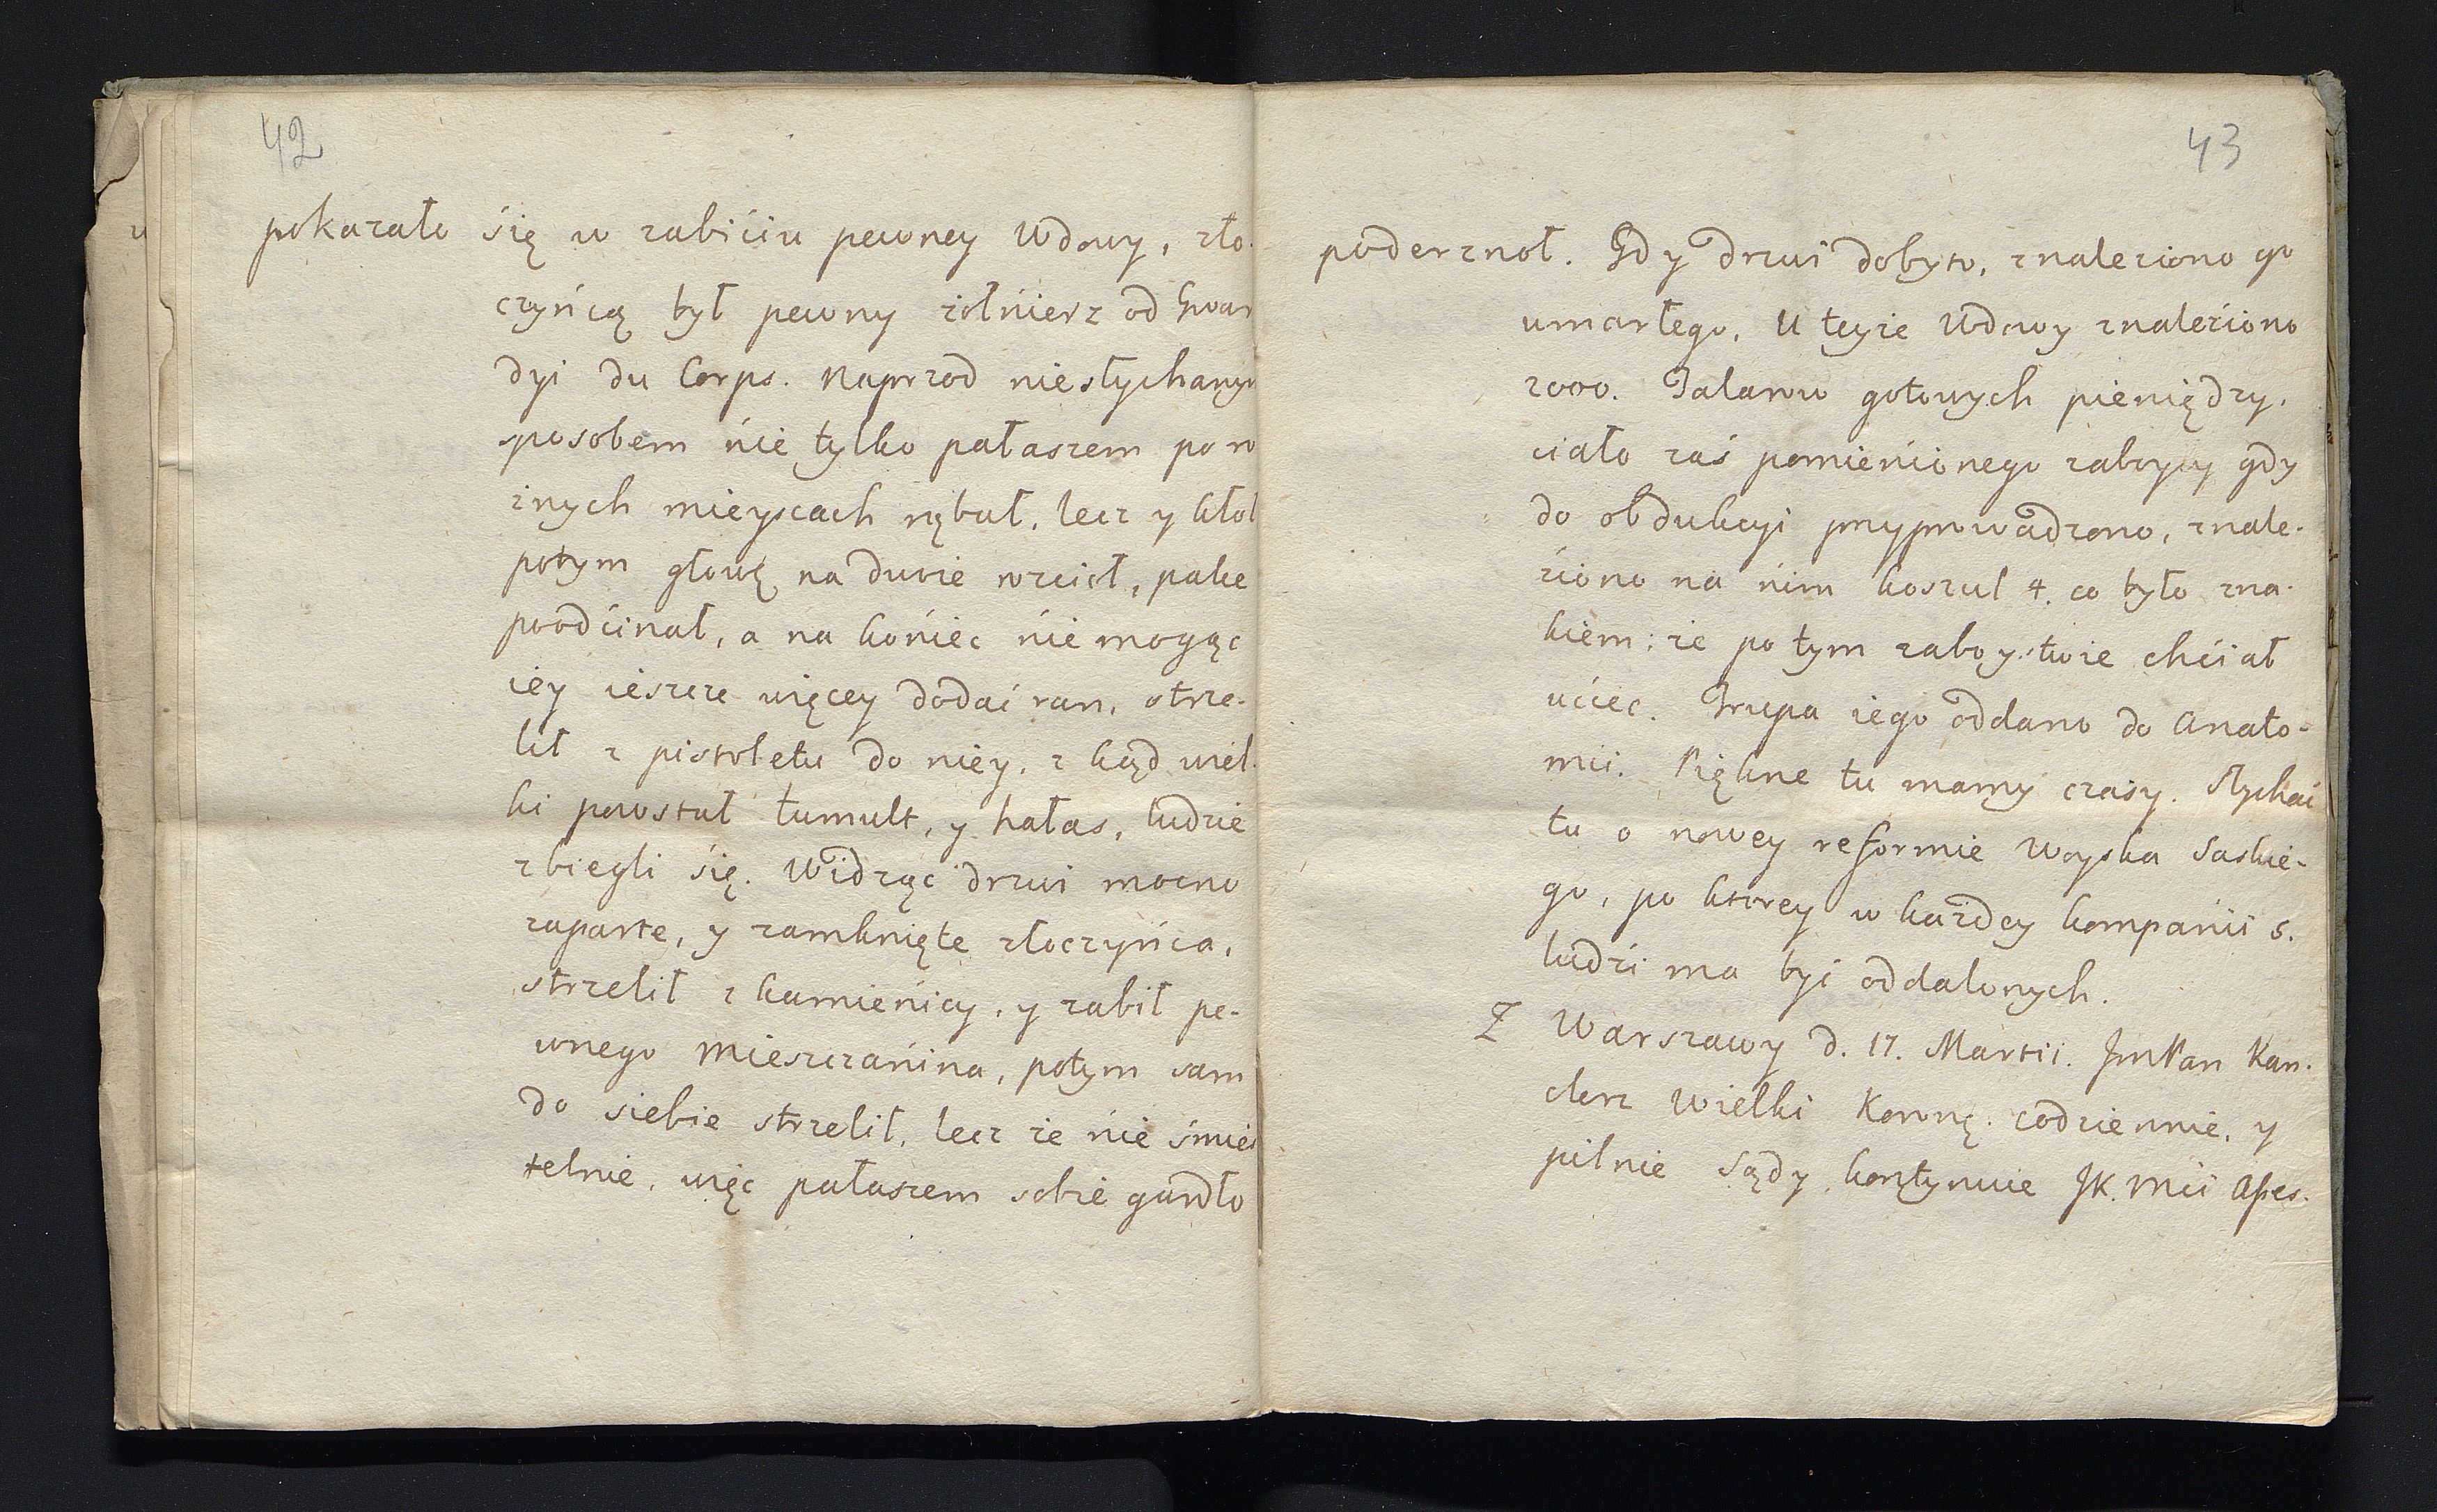 42
pokazało się w zabiciu pewney Wdowy, zło-
czyńcą był pewny żołnierz od Gwar
dyi du Corps. Naprzod niesłychanym
sposobem nie tylko pałaszem po ro
żnych mieyscach rąbał, lecz y kłoł
potym głowę na dwie rozciął, palce
poodcinał, a na koniec nie mogąc
iey ieszcze więcey dodać ran, strze-
lił z pistoletu do niey, z kąd wiel-
ki powstał tumult, y hałas, ludzie
zbiegli się. Widząc drzwi mocno
zaparte, y zamknięte złoczyńca,
strzelił z kamienicy, y zabił pe-
wnego Mieszczanina, potym sam
do siebie strzelił, lecz że nie śmier
telnie, więc pałaszem sobie gardło
43
poderznoł. Gdy drzwi dobyto, znaleziono go
umarłego, U teyże Wdowy znaleziono
2000. Talarow gotowych pieniędzy,
ciało zaś pomienionego zaboycy gdy
do obdukcyi przyprowadzono, znale-
ziono na nim koszul 4. co było zna-
kiem; że po tym zaboystwie chciał
uciec. Trupa iego oddano do Anato-
mii. Piękne tu mamy czasy. Słychać
tu o nowey reformie Woyska Saskie-
go, po ktorey w każdey kompanii 5.
ludzi ma być oddalonych.
Z Warszawy d. 17. Martii. JmPan Kan-
clerz Wielki Koronę. codziennie, y
pilnie Sądy kontynuie JK. Mci Asses-